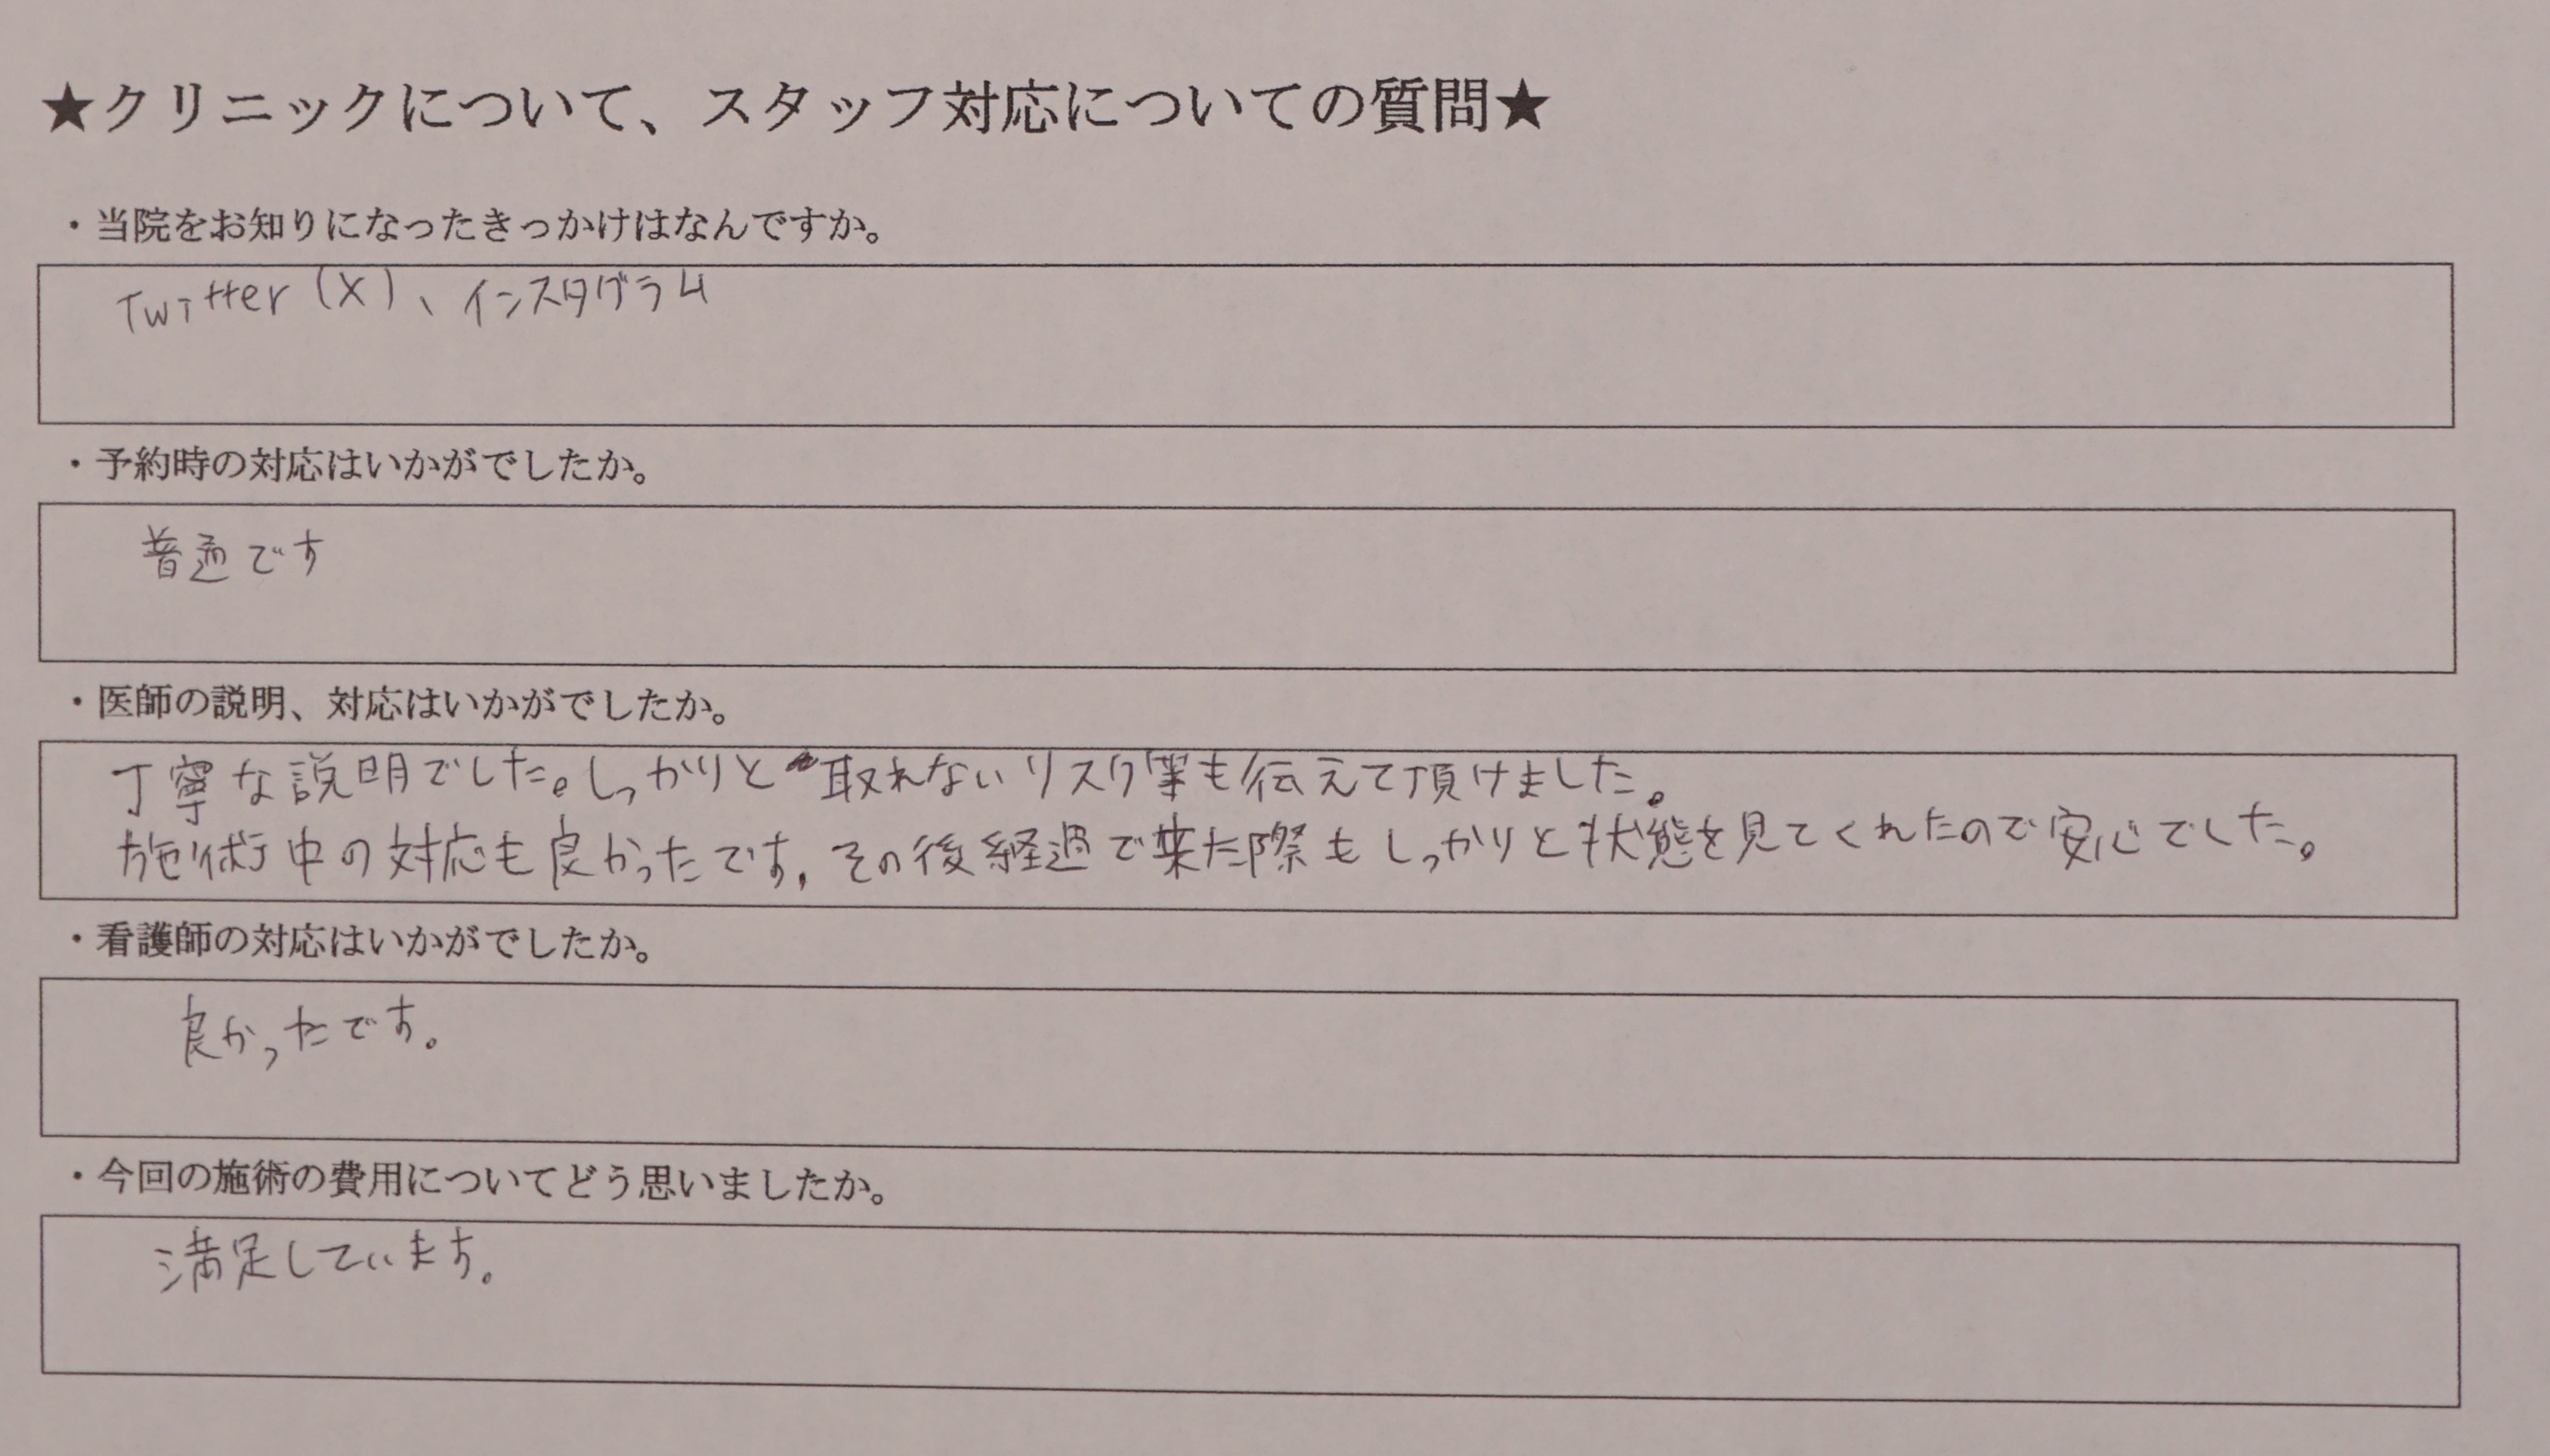 ★クリニックについて、スタッフ対応についての質問★
・当院をお知りになったきっかけはなんですか。
Twitter(X)、インスタグラム
・予約時の対応はいかがでしたか。
普通です
・医師の説明、対応はいかがでしたか。
丁寧な説明でした。しっかりと取れないリスク等も伝えて頂けました。
施術中の対応も良かったです。その後経過で来た際もしっかりと状態を見てくれたので安心でした。
・看護師の対応はいかがでしたか。
良かったです。
・今回の施術の費用についてどう思いましたか。
満足しています。